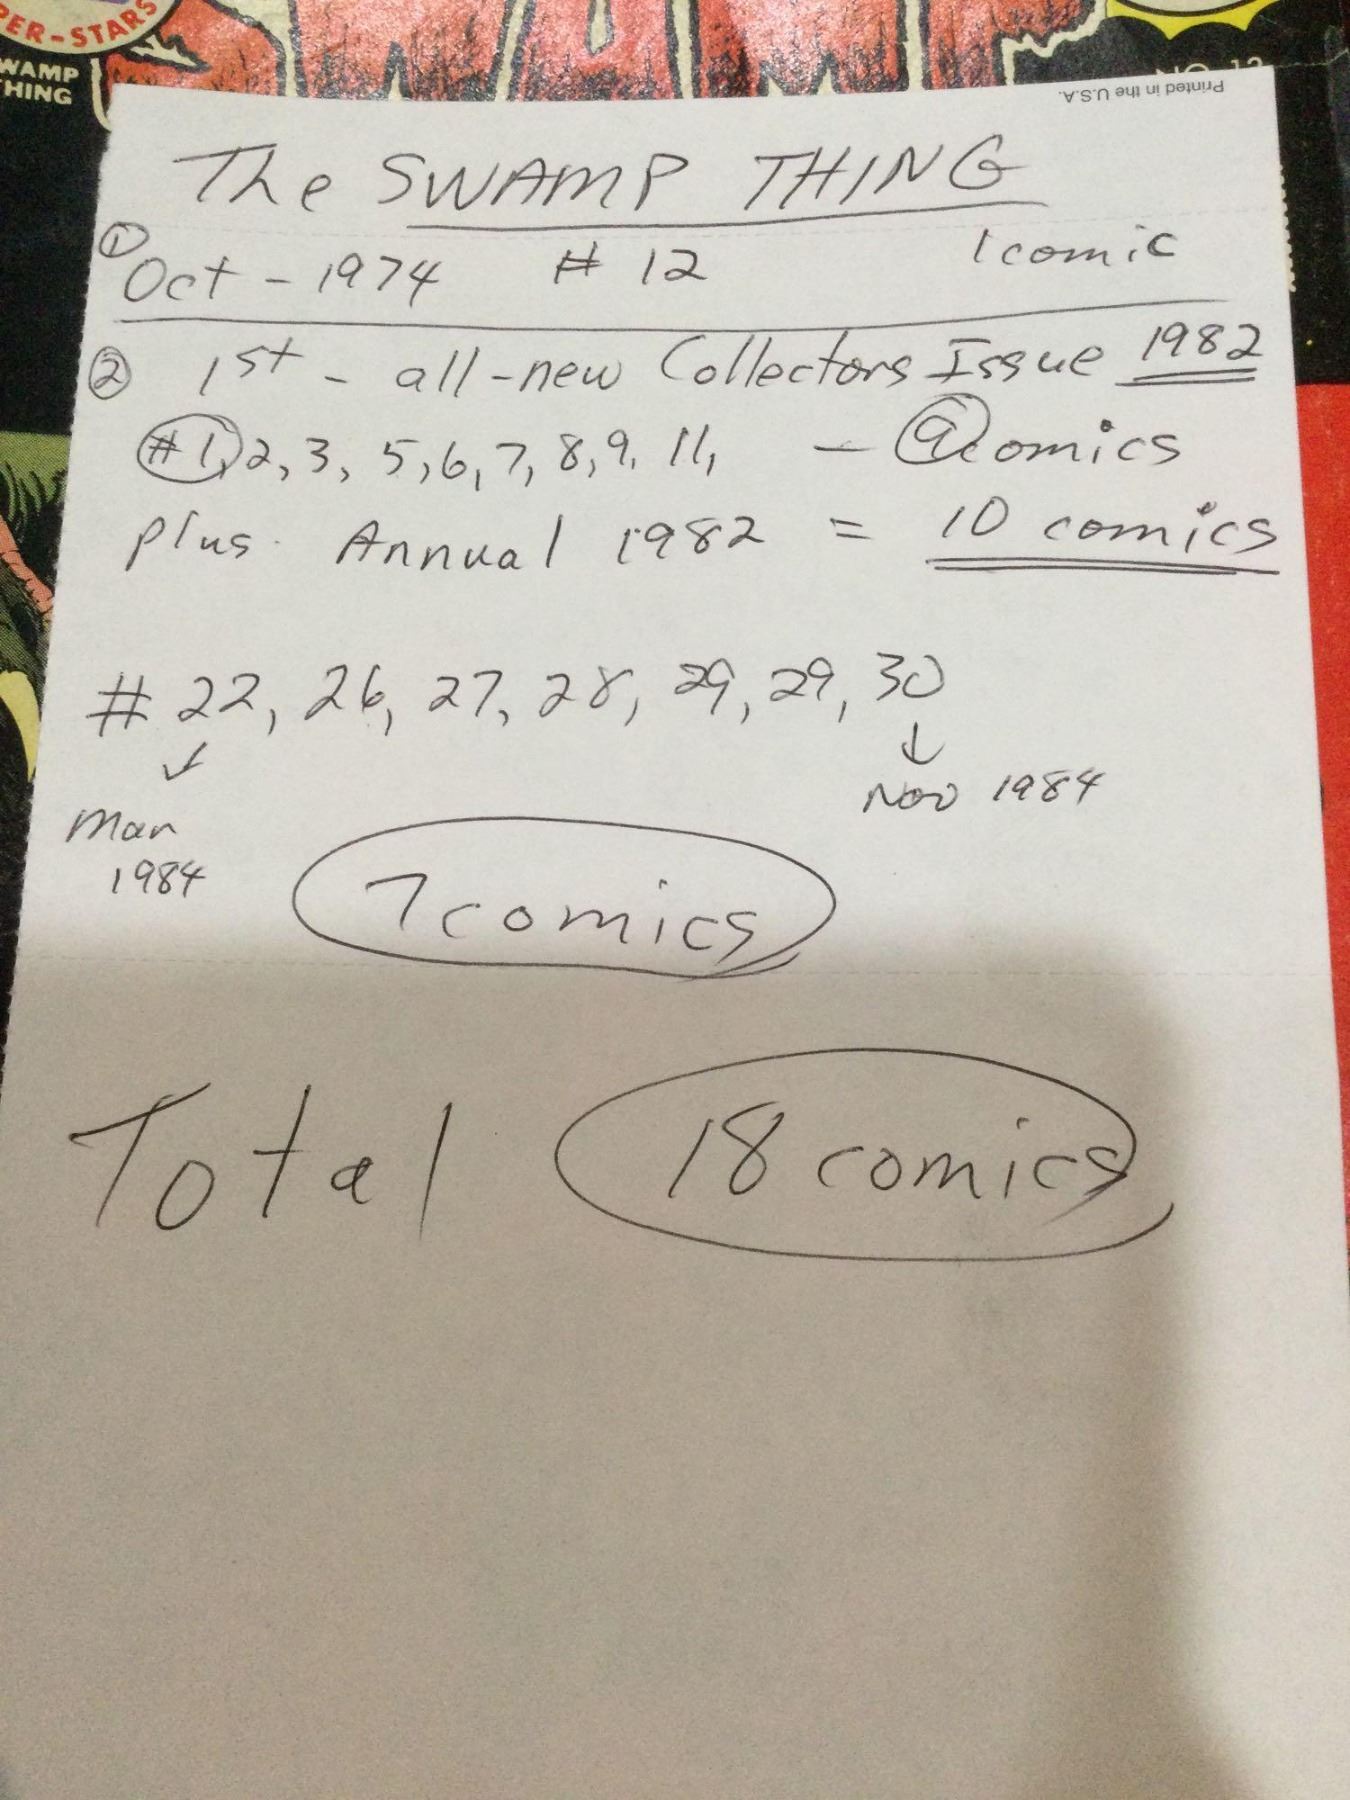 PER-STARS
SWAMP
THING
NO. 12
Printed in the U.S.A.
The SWAMP THING
① Oct - 1974 # 12 1 comic
② 1st - all-new Collectors Issue 1982
#1, 2, 3, 5, 6, 7, 8, 9, 11, - 9 comics
plus Annual 1982 = 10 comics
# 22, 26, 27, 28, 29, 29, 30
Mar
1984
Nov 1984
7 comics
Total 18 comics